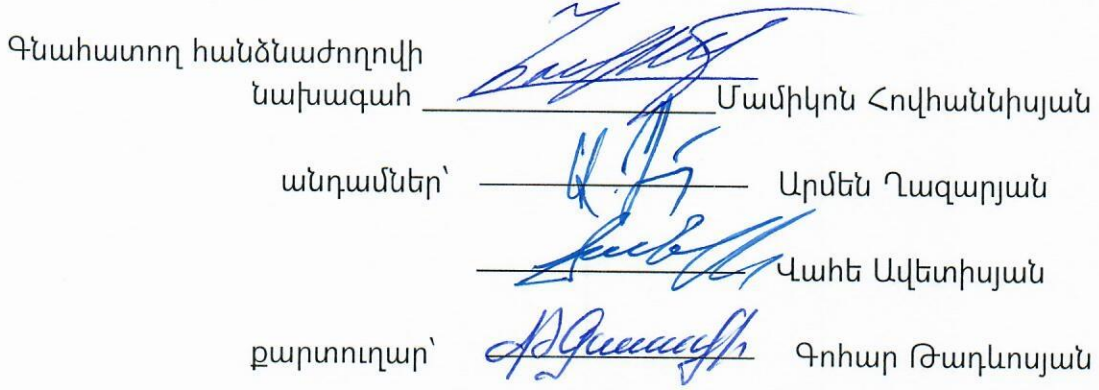 Գնահատող հանձնաժողովի
նախագահ Մամիկոն Հովհաննիսյան
անդամներ՝ Արմեն Ղազարյան
Վահե Ավետիսյան
քարտուղար՝ Գոհար Թադևոսյան